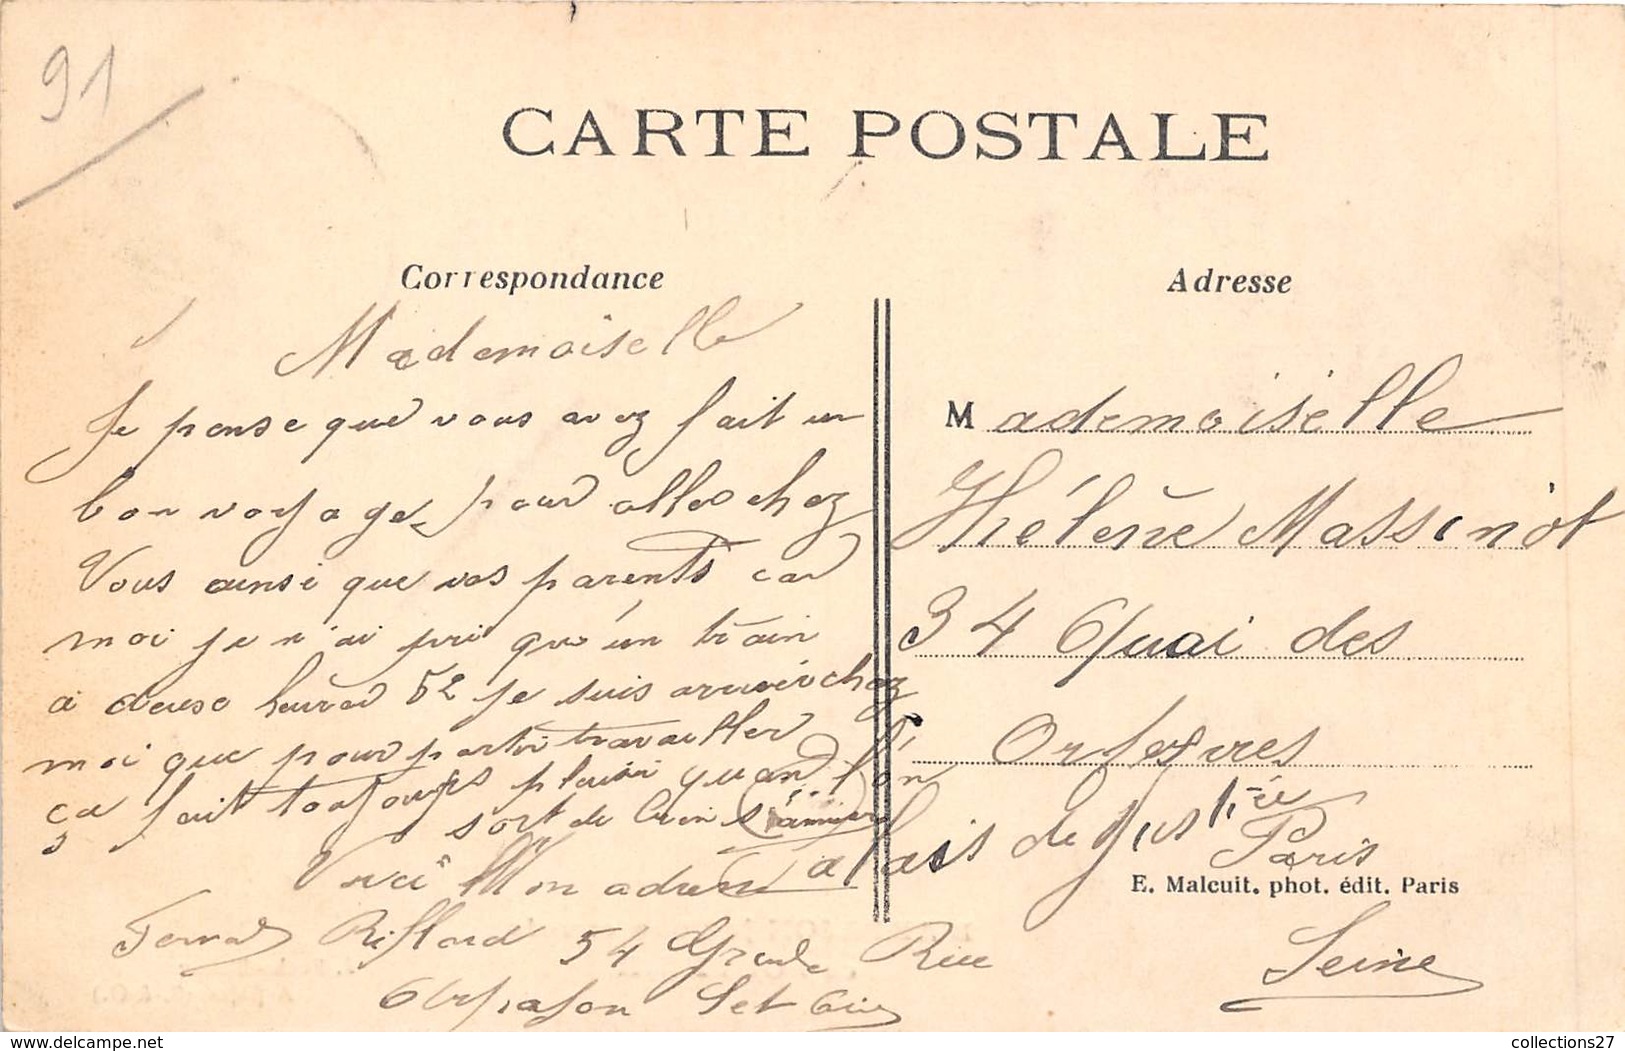 91
CARTE POSTALE
Correspondance
Mademoiselle
Je pense que vous avez fait un
bon voyage pour aller chez
Vous ainsi que vos parents car
moi je n'ai pri qu'un train
a deuse heures 52 je suis arriver chez
moi que pour partir travailler
ça fait toujours plaisir quand l'on
sort de
Voici Mon adresse
Fernand Riffard 54 Grande Rue
Arpajon Set Oise
Adresse
Mademoiselle
Hélène Massinot
34 Quai des
Orfevres
Palais de Justice
Paris
E. Malcuit. phot. édit. Paris
Seine
delcampe.net
collections27